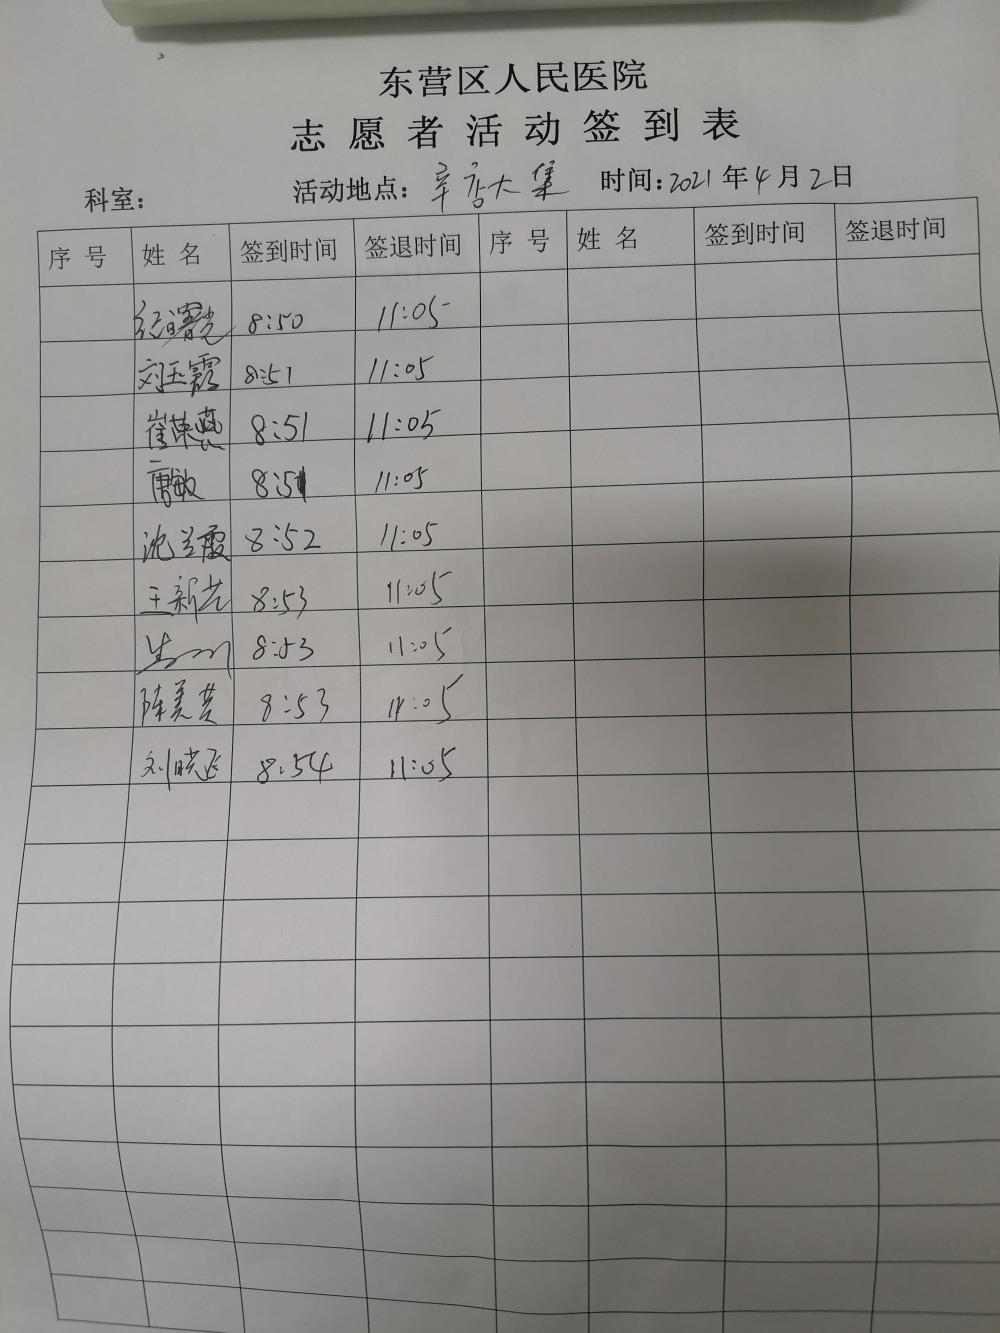 东营区人民医院
志愿者活动签到表
科室： 活动地点：辛店大集 时间：2021年4月2日
序号 姓名 签到时间 签退时间 序号 姓名 签到时间 签退时间
纪曙光 8:50 11:05
刘玉霞 8:51 11:05
崔英燕 8:51 11:05
唐敏 8:51 11:05
沈兰霞 8:52 11:05
王新艺 8:53 11:05
8:53 11:05
陈美芸 8:53 11:05
刘晓飞 8:54 11:05